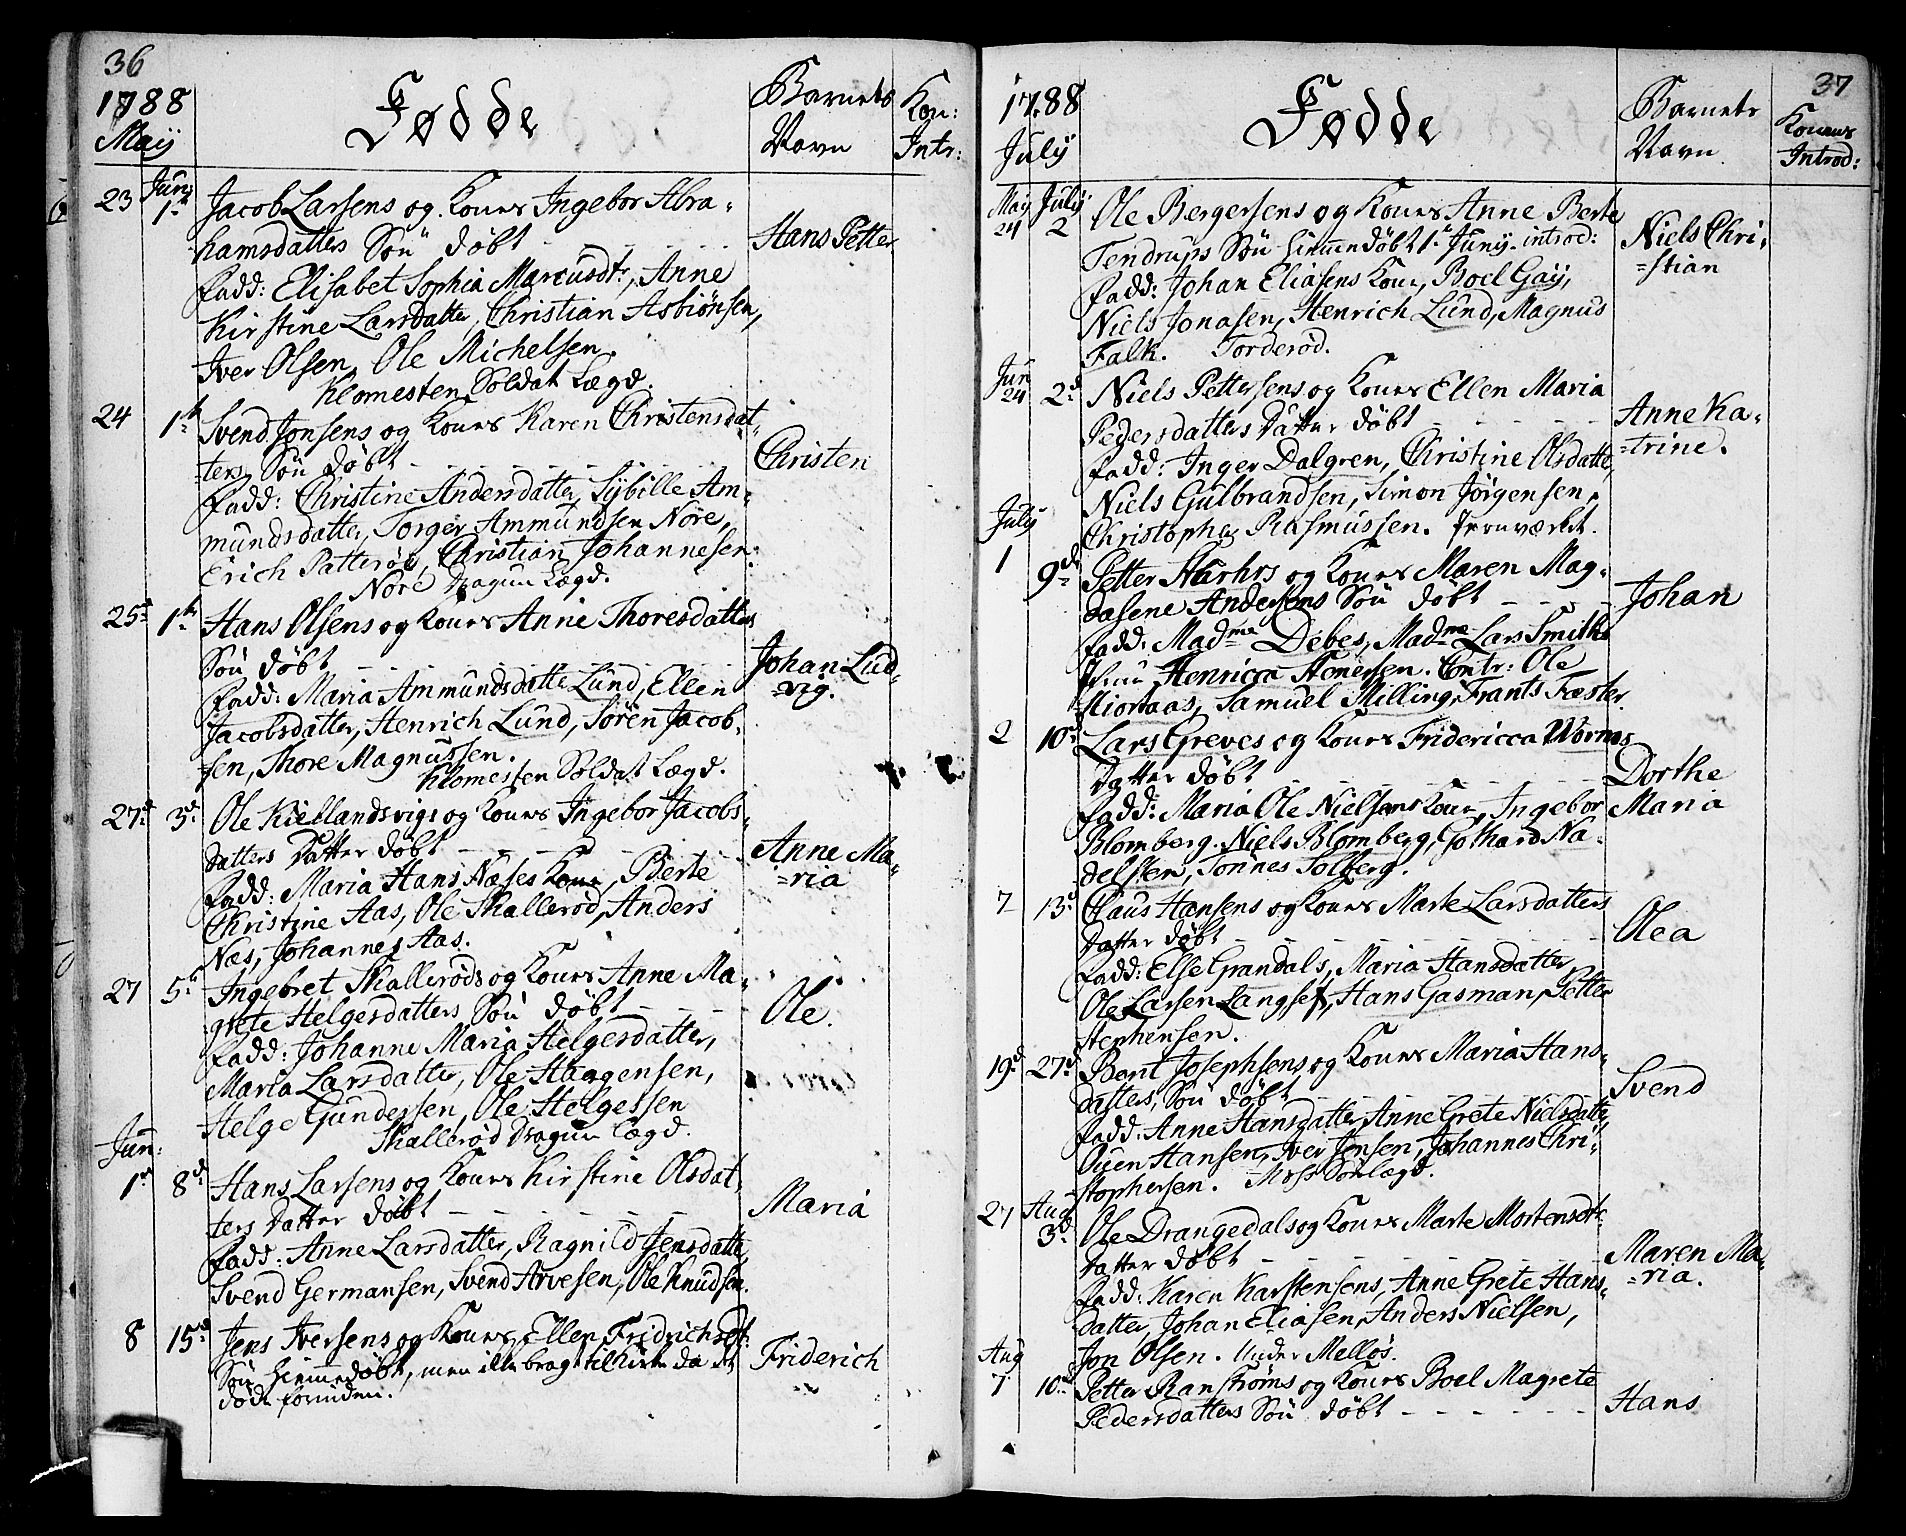 36
1788 Fødde Barnets Kon:
May Navn Intr:
23 Junj 1te Jacob Larsens og Kones Ingebor Abra-
hamsdatters Søn døbt - - - Hans Petter
Fadd: Elisabet Sophia Marcusdtr, Anne
Kirstine Larsdatter, Christian Asbiønsen,
Iver Olsen, Ole Michelsen.
Klomesten Soldat Lægd.
24 1te Svend Jonsens og Kones Karen Christensdat-
ters Søn døbt - - - Christen
Fadd: Christine Andersdatter, Sybille Am-
mundsdatter, Torger Ammundsen Nore,
Erich Patterød, Christian Johannesen:
Nore Dragun Lægd.
25d 1te Hans Olsens og Kones Anne Thoresdatters
Søn døbt - - - Johan Lud-
=vig.
Fadd: Maria Ammundsdatter Lund, Ellen
Jacobsdatter, Henrich Lund, Søren Jacob-
sen, Thore Magnussen.
Klomesten Soldat Lægd.
27d 3d Ole Kiellandsvigs og Kones Ingebor Jacobs-
datters Datter døbt - - - Anne Ma-
=ria
Fadd: Maria Hans Næses Kone, Berte
Christine Aas, Ole Skallerød, Anders
Næs, Johannes Aas.
27 5te Ingebret Skallerøds og Kones Anne Ma-
grete Helgesdatters Søn døbt - - - Ole.
Fadd: Johanne Maria Helgesdatter,
Maria Larsdatter, Ole Haagensen,
Helge Gundersen, Ole Helgessen
Skallerød Dragun Lægd.
Jun:
1te 8d Hans Larsens og Kones Kirstine Olsdat-
ters Datter døbt - - - Maria
Fadd: Anne Larsdatter, Ragnild Jensdatter,
Svend Germansen, Svend Arvesen, Ole Knudsen.
8 15d Jens Iversens og Kones Ellen Fridrichsdt:
Søn hiemmedøbt, men ikke bragt til Kirke da det Friderich
døde forinden.
37
1788 Fødde Barnets Konens
July Navn Introd:
May 24 July 2 Ole Bergersens og Kones Anne Berte
Tendrups Søn hiemmedøbt 1te Juny introd: Niels Chri-
=stian
Fadd: Johan Eliasens Kone, Boel Gay,
Niels Jonasen, Henrich Lund, Magnus
Falk. Torderød.
Jun 24 2d Niels Pettersens og Kones Ellen Maria
Pedersdatters Datter døbt - - - Anne Ka-
=trine.
Fadd: Inger Dalgren, Christine Olsdatter,
Niels Gulbrandsen, Simon Jørgensen,
Christopher Rasmussen. Jernværket.
July
1 9de Petter Hørhrs og Kones Maren Mag-
dalene Andersens Søn døbt - - - Johan
Fadd: Madme Debes, Madme Lars Smiths
Henricca Stenersen. Contr: Ole
Miortaas, Samuel Milling, Frants Fæster.
2 10d Lars Greves og Kones Fridericca Wormes
Datter døbt - - - Dorthe
Maria
Fadd: Maria Ole Nielsens Kone, Ingebor
Blomberg. Niels Blomberg, Gothard Na-
delsten, Tønnes Solberg.
7 13d Claus Hansens og Kones Marte Larsdatters
Datter døbt - - - Olea
Fadd: Else Grandals, Maria Hansdatter
Ole Larsen Langset, Hans Gasman, Petter
Stephensen.
19d 27d Bent Josephsens og Kones Maria Hans-
datters, Søn døbt - - - Svend
Fadd: Anne Hansdatter, Anne Grete Nielsdatter
Ouen Hansen, Iver Jensen, Johannes Chri-
stophersen. Moss Søelægd.
27 Aug 3d Ole Drangedals og Kones Marte Mortensdtr:
Datter døbt - - - Maren Ma-
=ria.
Fadd: Karen Karstensens, Anne Grete Hans-
datter, Johan Eliasen, Anders Nielsen,
Jon Olsen. Under Melløs.
Aug
7 10de Petter Ranstrøms og Kones Boel Magrete
Pedersdatters Søn døbt - - - Hans